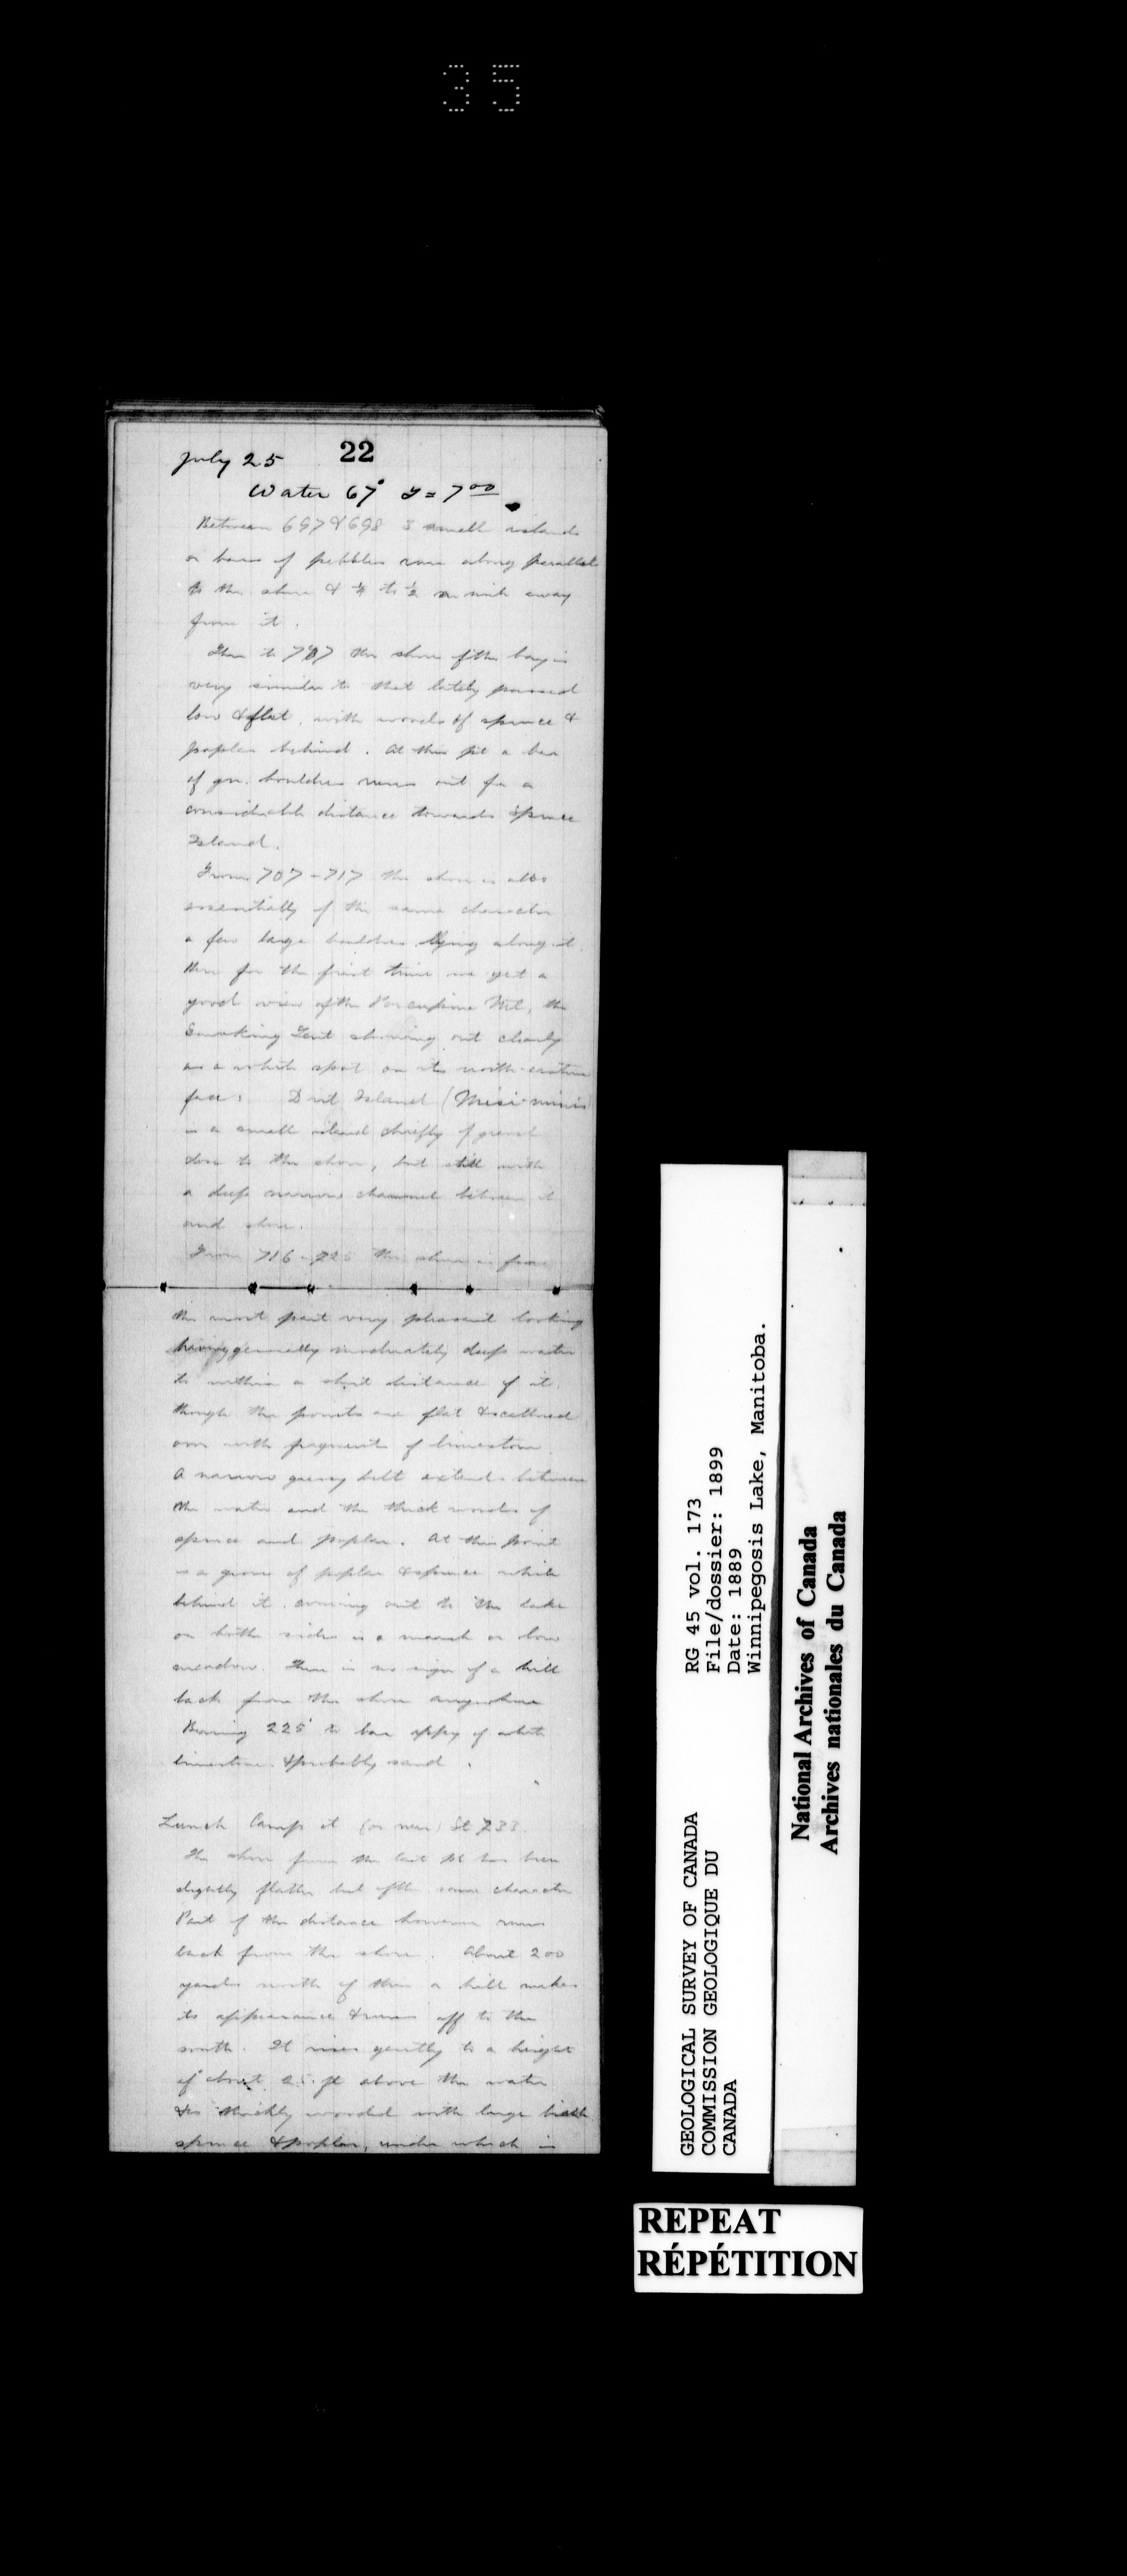 35
22
July 25
Water 67° T = 7 00
Between 697 & 698 3 small islands
or bars of pebbles run along parallel
to the shore & ¼ to ½ mile away
from it.
Then to 707 the shore of the bay is
very similar to that lately passed
low & flat, with woods of spruce &
poplar behind. At this pt a bar
of gn. boulders runs out for a
considerable distance towards Spruce
Island.
From 707 - 717 the shore is also
essentially of the same character
a few large boulders lying along it.
Here for the first time we get a
good view of the Porcupine Mt, the
Smoking Tent showing out clearly
as a white spot on its north-eastern
face. Island (Misi-minis)
is a small island chiefly of gravel
close to the shore, but still with
a deep narrow channel between it
and shore.
From 716 - 725 the shore is for
the most part very pleasant looking
having generally moderately deep water
to within a short distance of it,
though the points are flat & scattered
over with fragments of limestone.
A narrow grassy belt extends between
the water and the thick woods of
spruce and poplar. At this point
is a grove of poplar & spruce while
behind it coming out to the lake
on both sides is a marsh or low
meadow. There is no sign of a hill
back from the shore anywhere
Bearing 225° to bar appy of white
limestone & probably sand.
Lunch Camp at (or near) St 733.
The shore from the last pt has been
slightly flatter but of the same character
Part of the distance however runs
back from the shore. About 200
yards north of this a hill makes
its appearance & runs off to the
south. It rises gently to a height
of about 25 ft above the water
& is thickly wooded with large birch
spruce & poplar, under which is
GEOLOGICAL SURVEY OF CANADA
COMMISSION GEOLOGIQUE DU
CANADA
RG 45 vol. 173
File/dossier: 1899
Date: 1889
Winnipegosis Lake, Manitoba.
National Archives of Canada
Archives nationales du Canada
REPEAT
RÉPÉTITION